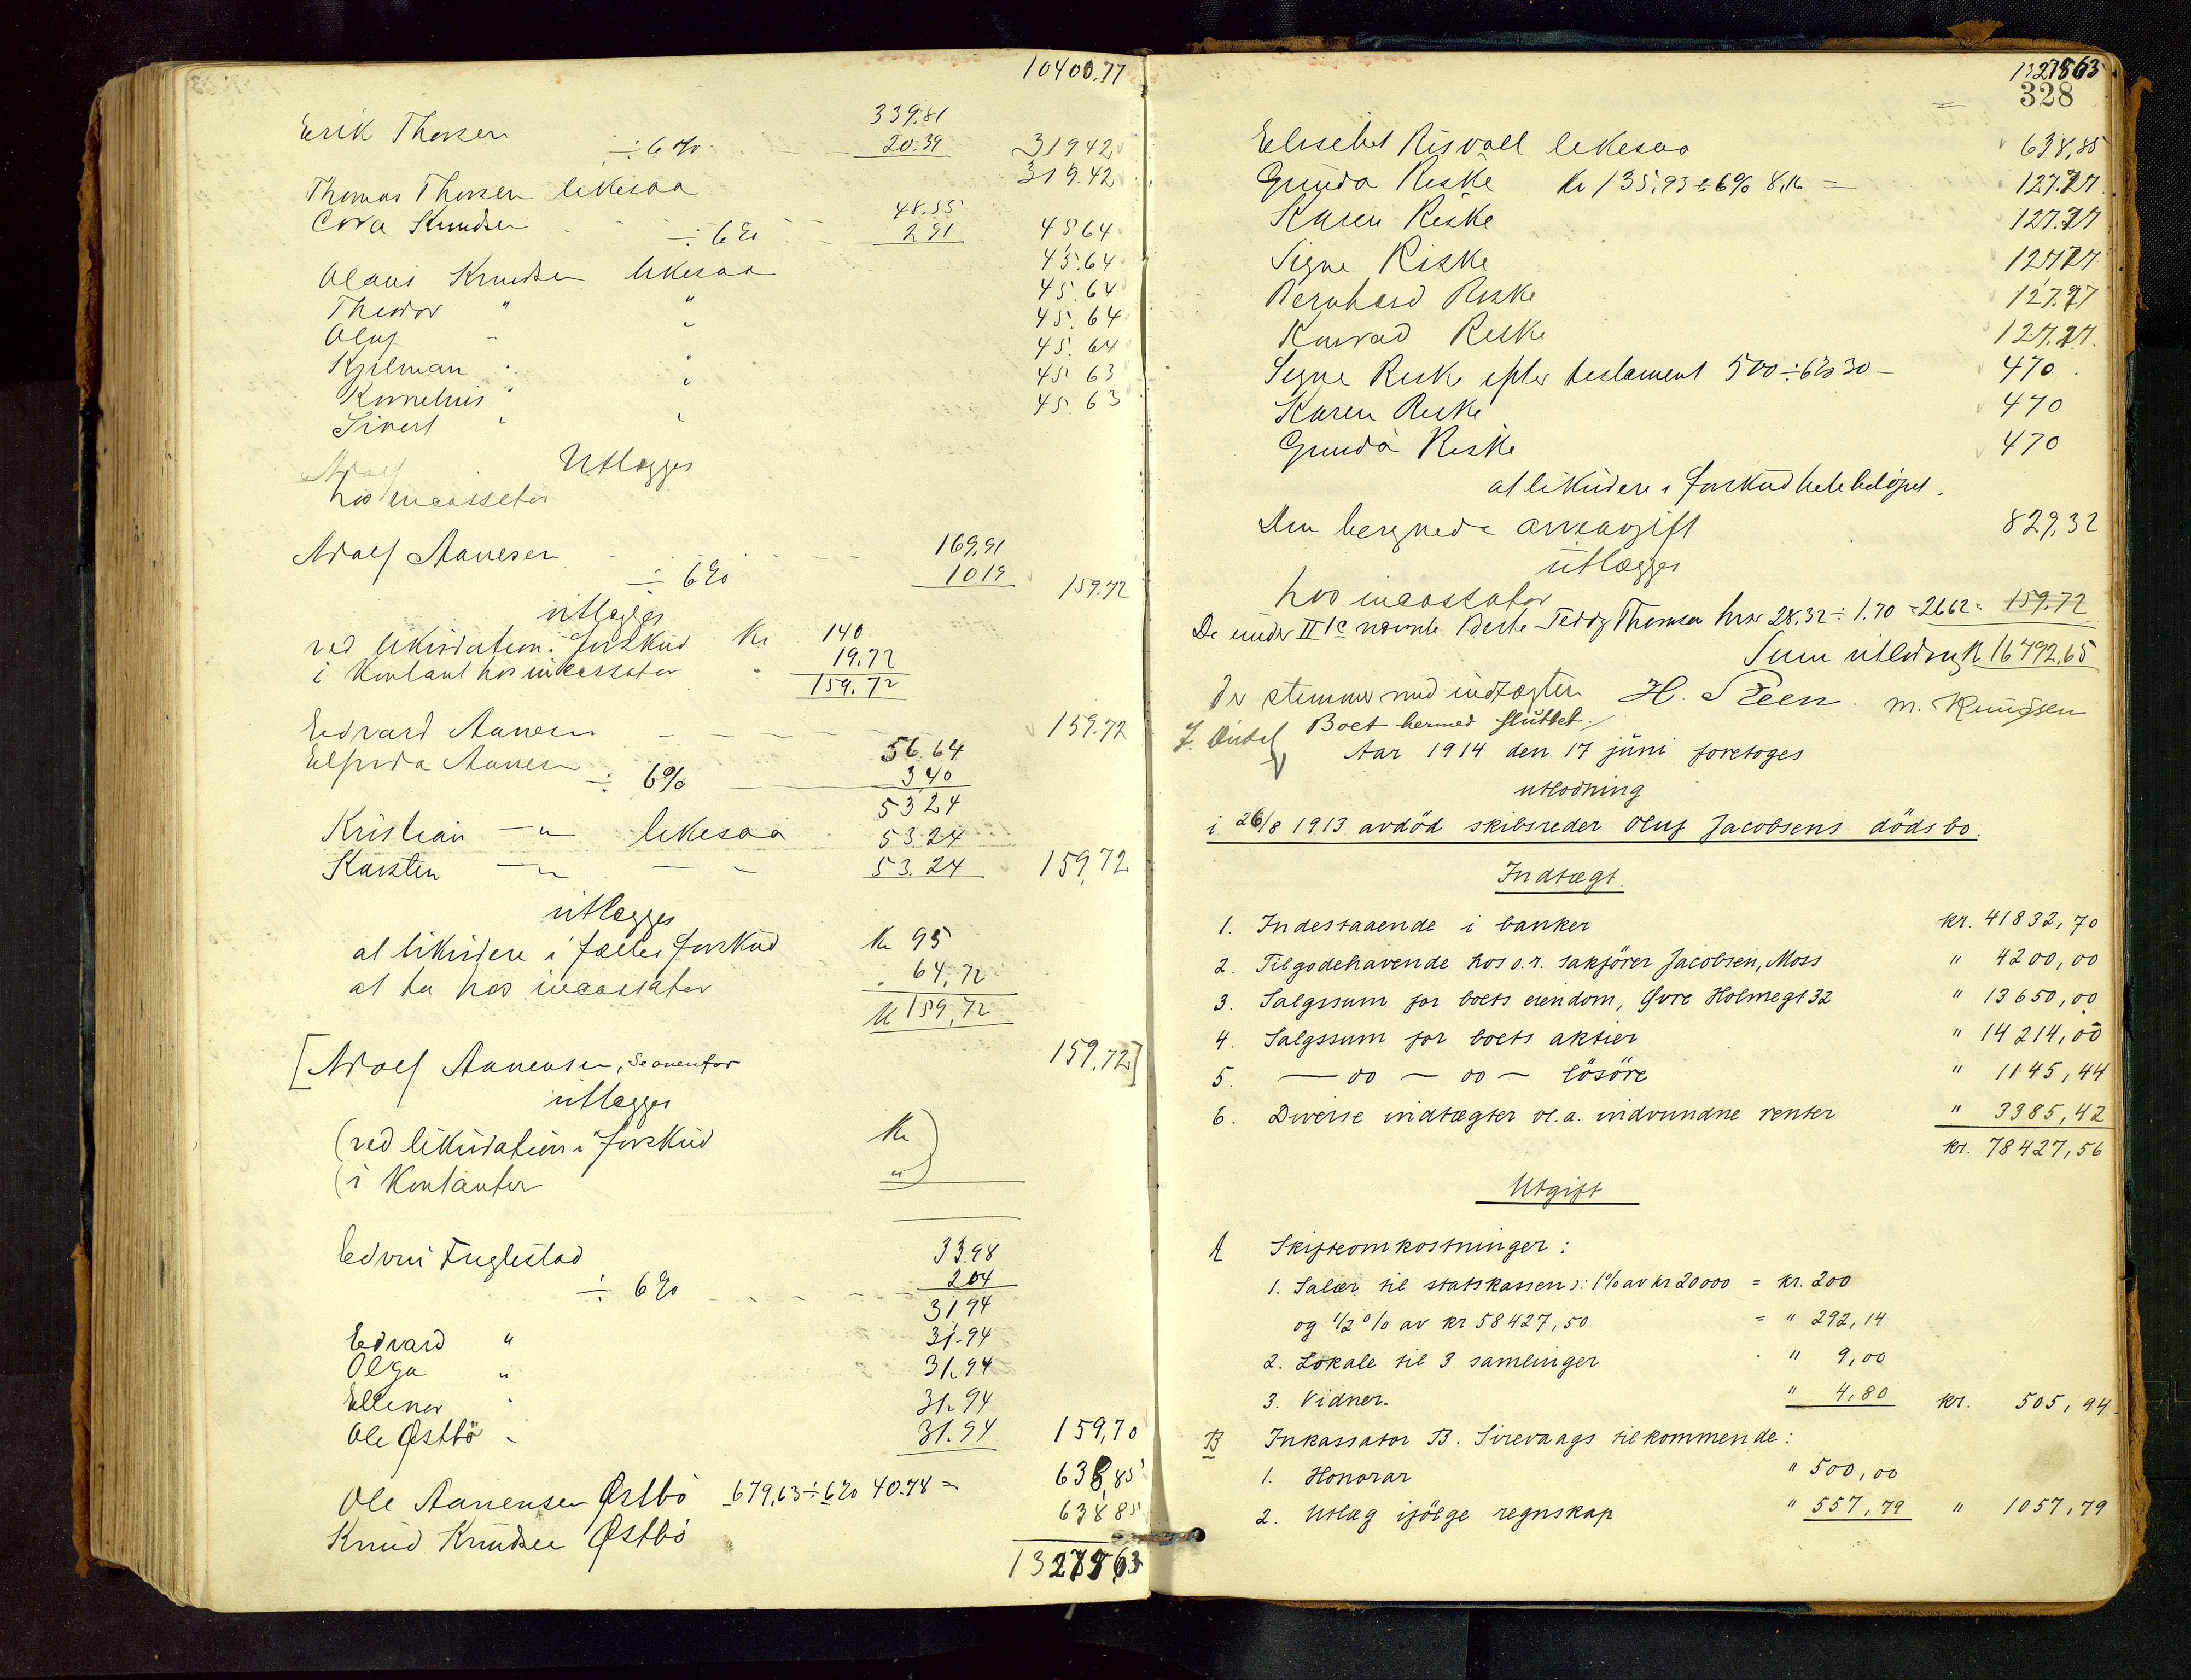 10400.77
Erik Thorsen 339,81
÷ 6 % 20.39 319 42
Thomas Thorsen likesaa 319.42
Cora Knudsen 48.55
÷ 6 % 2 91 45 64
Olaus Knudsen likesaa 45.64
Theodor " " 45.64
Oluf " " 45.64
Hjelman " " 45.64
Kornelius " " 45 63
Sivert " " 45.63
Adolf Utlægges
hos incassator
Adolf Aanesen 169,91
÷ 6 % 10 19 159.72
utlægges
ved likvidation i forskud Kr 140
i Kontant hos incassator " 19.72
159.72
Edvard Aanesen 159.72
Elfrida Aanesen 56.64
÷ 6 % 3 40
53 24
Kristian — " — likesaa 53.24
Karsten — " — — - 53.24 159,72
utlægges
at likvidere i fælles forskud Kr 95
at ta hos incassator " 64,72
Kr 159,72
[Adolf Aanensen, se ovenfor 159,72]
utlægges
(ved likvidation i forskud Kr )
(i Kontanter " )
Edvin Fuglestad 33.98
÷ 6 % 2 04
31 94
Edvard " 31.94
Olga " 31.94
Ellinor " 31.94
Ole Østbö " 31.94 159,70
Ole Aanensen Østbö 679,63 ÷ 6 % 40.78 = 638,85
Knud Knudsen Østbö 638 85
13278,63
13278 63
328
Elisebet Risvoll likesaa 638,85
Gunda Riske Kr 135,93 ÷ 6 % 8,16 = 127.77
Karen Riske 127.77
Signe Riske 127 77
Bernhard Riske 127.77
Konrad Riske 127.77
Signe Risk efter testament 500 ÷ 6 % 30 - 470
Karen Riske 470
Gunda Riske 470
at likvidere i forskud hele belöpet.
Den beregnede arveavgift 829,32
utlægges
hos incassator
De under II 1 c nævnte Berte Teddy Thomsen hver 28.32 ÷ 1.70 = 26 62 = 159.72
Sum utlodning Kr 16792,65
der stemmer med indtægten H. Steen. M. Knudsen
Boet hermed sluttet.
Aar 1914 den 17 juni foretoges
utlodning
i 26/8 1913 avdöd skibsreder Oluf Jacobsens dödsbo.
Indtægt.
1. Indestaaende i banker kr. 41832,70
2. Tilgodehavende hos o.r. sakförer Jacobsen, Moss " 4200,00
3. Salgssum for boets eiendom, Øvre Holmegt 32 " 13650,00
4. Salgssum for boets aktier " 14214,00
5. — oo — oo — lösöre " 1145,44
6. Diverse indtægter bl.a. indvundne renter " 3385,42
kr. 78427,56
Utgift
A Skifteomkostninger:
1. Salær til statskassen): 1% av kr 20000 = kr. 200
og 1/2 % av kr 58427,50 = " 292,14
2. Lokale til 3 samlinger " 9,00
3. Vidner. " 4,80 kr. 505,94
B Inkassator B. Sirevaags tilkommende:
1. Honorar " 500,00
2. Utlæg ifölge regnskap " 557,79 " 1057,79